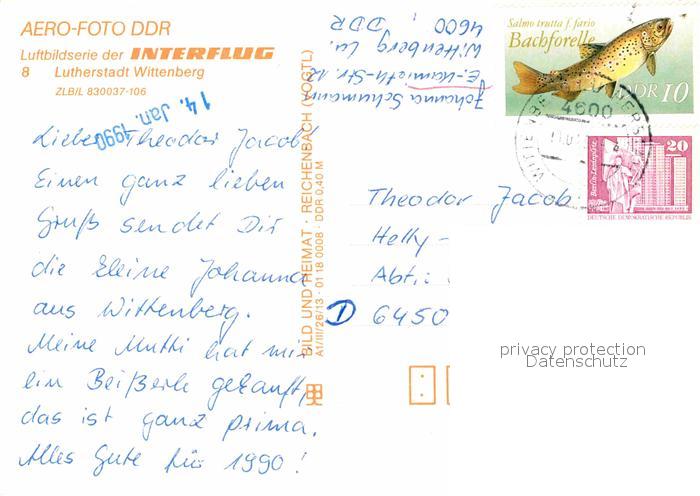 AERO-FOTO DDR
Luftbildserie der INTERFLUG
8 Lutherstadt Wittenberg
ZLB/L 830037-106
14. Jan. 1990
Lieber Theodor Jacob!
Einen ganz lieben
Gruß sendet Dir
die kleine Johanna
aus Wittenberg.
Meine Mutti hat mir
ein Beißerle gekauft,
das ist ganz prima.
Alles Gute für 1990!
Johanna Schumann
Wittenberg Lu.
4600, DDR
BILD UND HEIMAT · REICHENBACH (VOGTL)
A1/III/26/13 · 01 18 0008 · DDR 0,40 M
Salmo trutta f. fario
Bachforelle
DDR 10
4600
20
Berlin-Leninplatz
DEUTSCHE DEMOKRATISCHE REPUBLIK
Theodor Jacob
Helly-
Abt.:
D 6450
privacy protection
Datenschutz